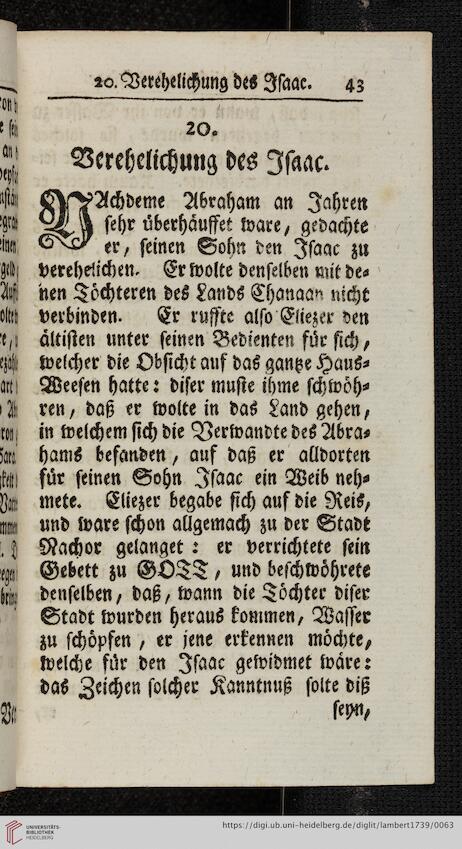 20. Verehelichung des Isaac. 43
20.
Verehelichung des Isaac.
NAchdeme Abraham an Jahren
sehr überhäuffet ware, gedachte
er, seinen Sohn den Isaac zu
verehelichen. Er wolte denselben mit de-
nen Töchteren des Lands Chanaan nicht
verbinden. Er ruffte also Eliezer den
ältisten unter seinen Bedienten für sich,
welcher die Obsicht auf das gantze Haus-
Weesen hatte: diser muste ihme schwöh-
ren, daß er wolte in das Land gehen,
in welchem sich die Verwandte des Abra-
hams befanden, auf daß er alldorten
für seinen Sohn Isaac ein Weib neh-
mete. Eliezer begabe sich auf die Reis,
und ware schon allgemach zu der Stadt
Nachor gelanget: er verrichtete sein
Gebett zu GOTT, und beschwöhrete
denselben, daß, wann die Töchter diser
Stadt wurden heraus kommen, Wasser
zu schöpfen, er jene erkennen möchte,
welche für den Isaac gewidmet wäre:
das Zeichen solcher Kanntnuß solte diß
seyn,
UNIVERSITÄTS-
BIBLIOTHEK
HEIDELBERG
https://digi.ub.uni-heidelberg.de/diglit/lambert1739/0063